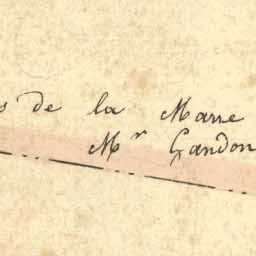 s de la Marre
Mr Gandon